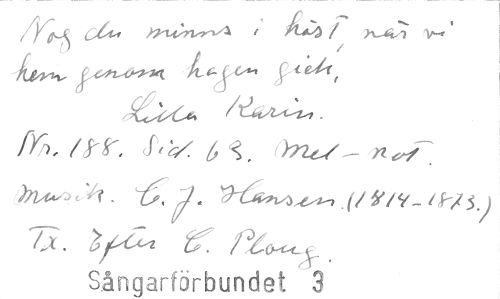 Nog du minns i höst, när vi
hem genom hagen gick,
Lilla Karin.
Nr. 188. Sid. 63. Mel-not.
Musik. C. J. Hansen. (1814-1873.)
Tx. Efter C. Ploug.
Sångarförbundet 3